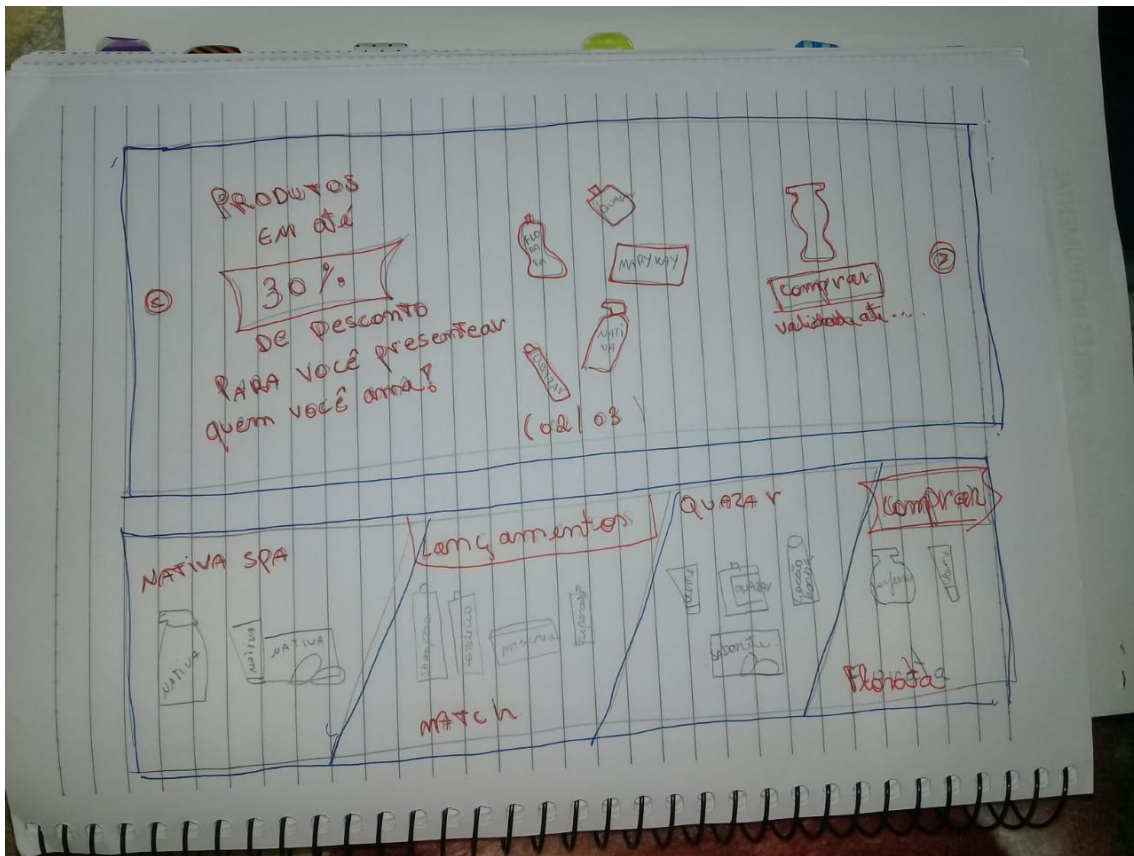 PRODUTOS
EM até
30%
DE DESCONTO
PARA VOCÊ presentear
quem você ama!
<
FLO
RA
TA
QUAZ
MARY KAY
NATI
VA
(02/03
comprar
validade até....
>
NATIVA SPA
NATIVA
NATIVA
NATIVA
Lançamentos
MATCH
QUAZAr
QUAZAR
comprar
Florata